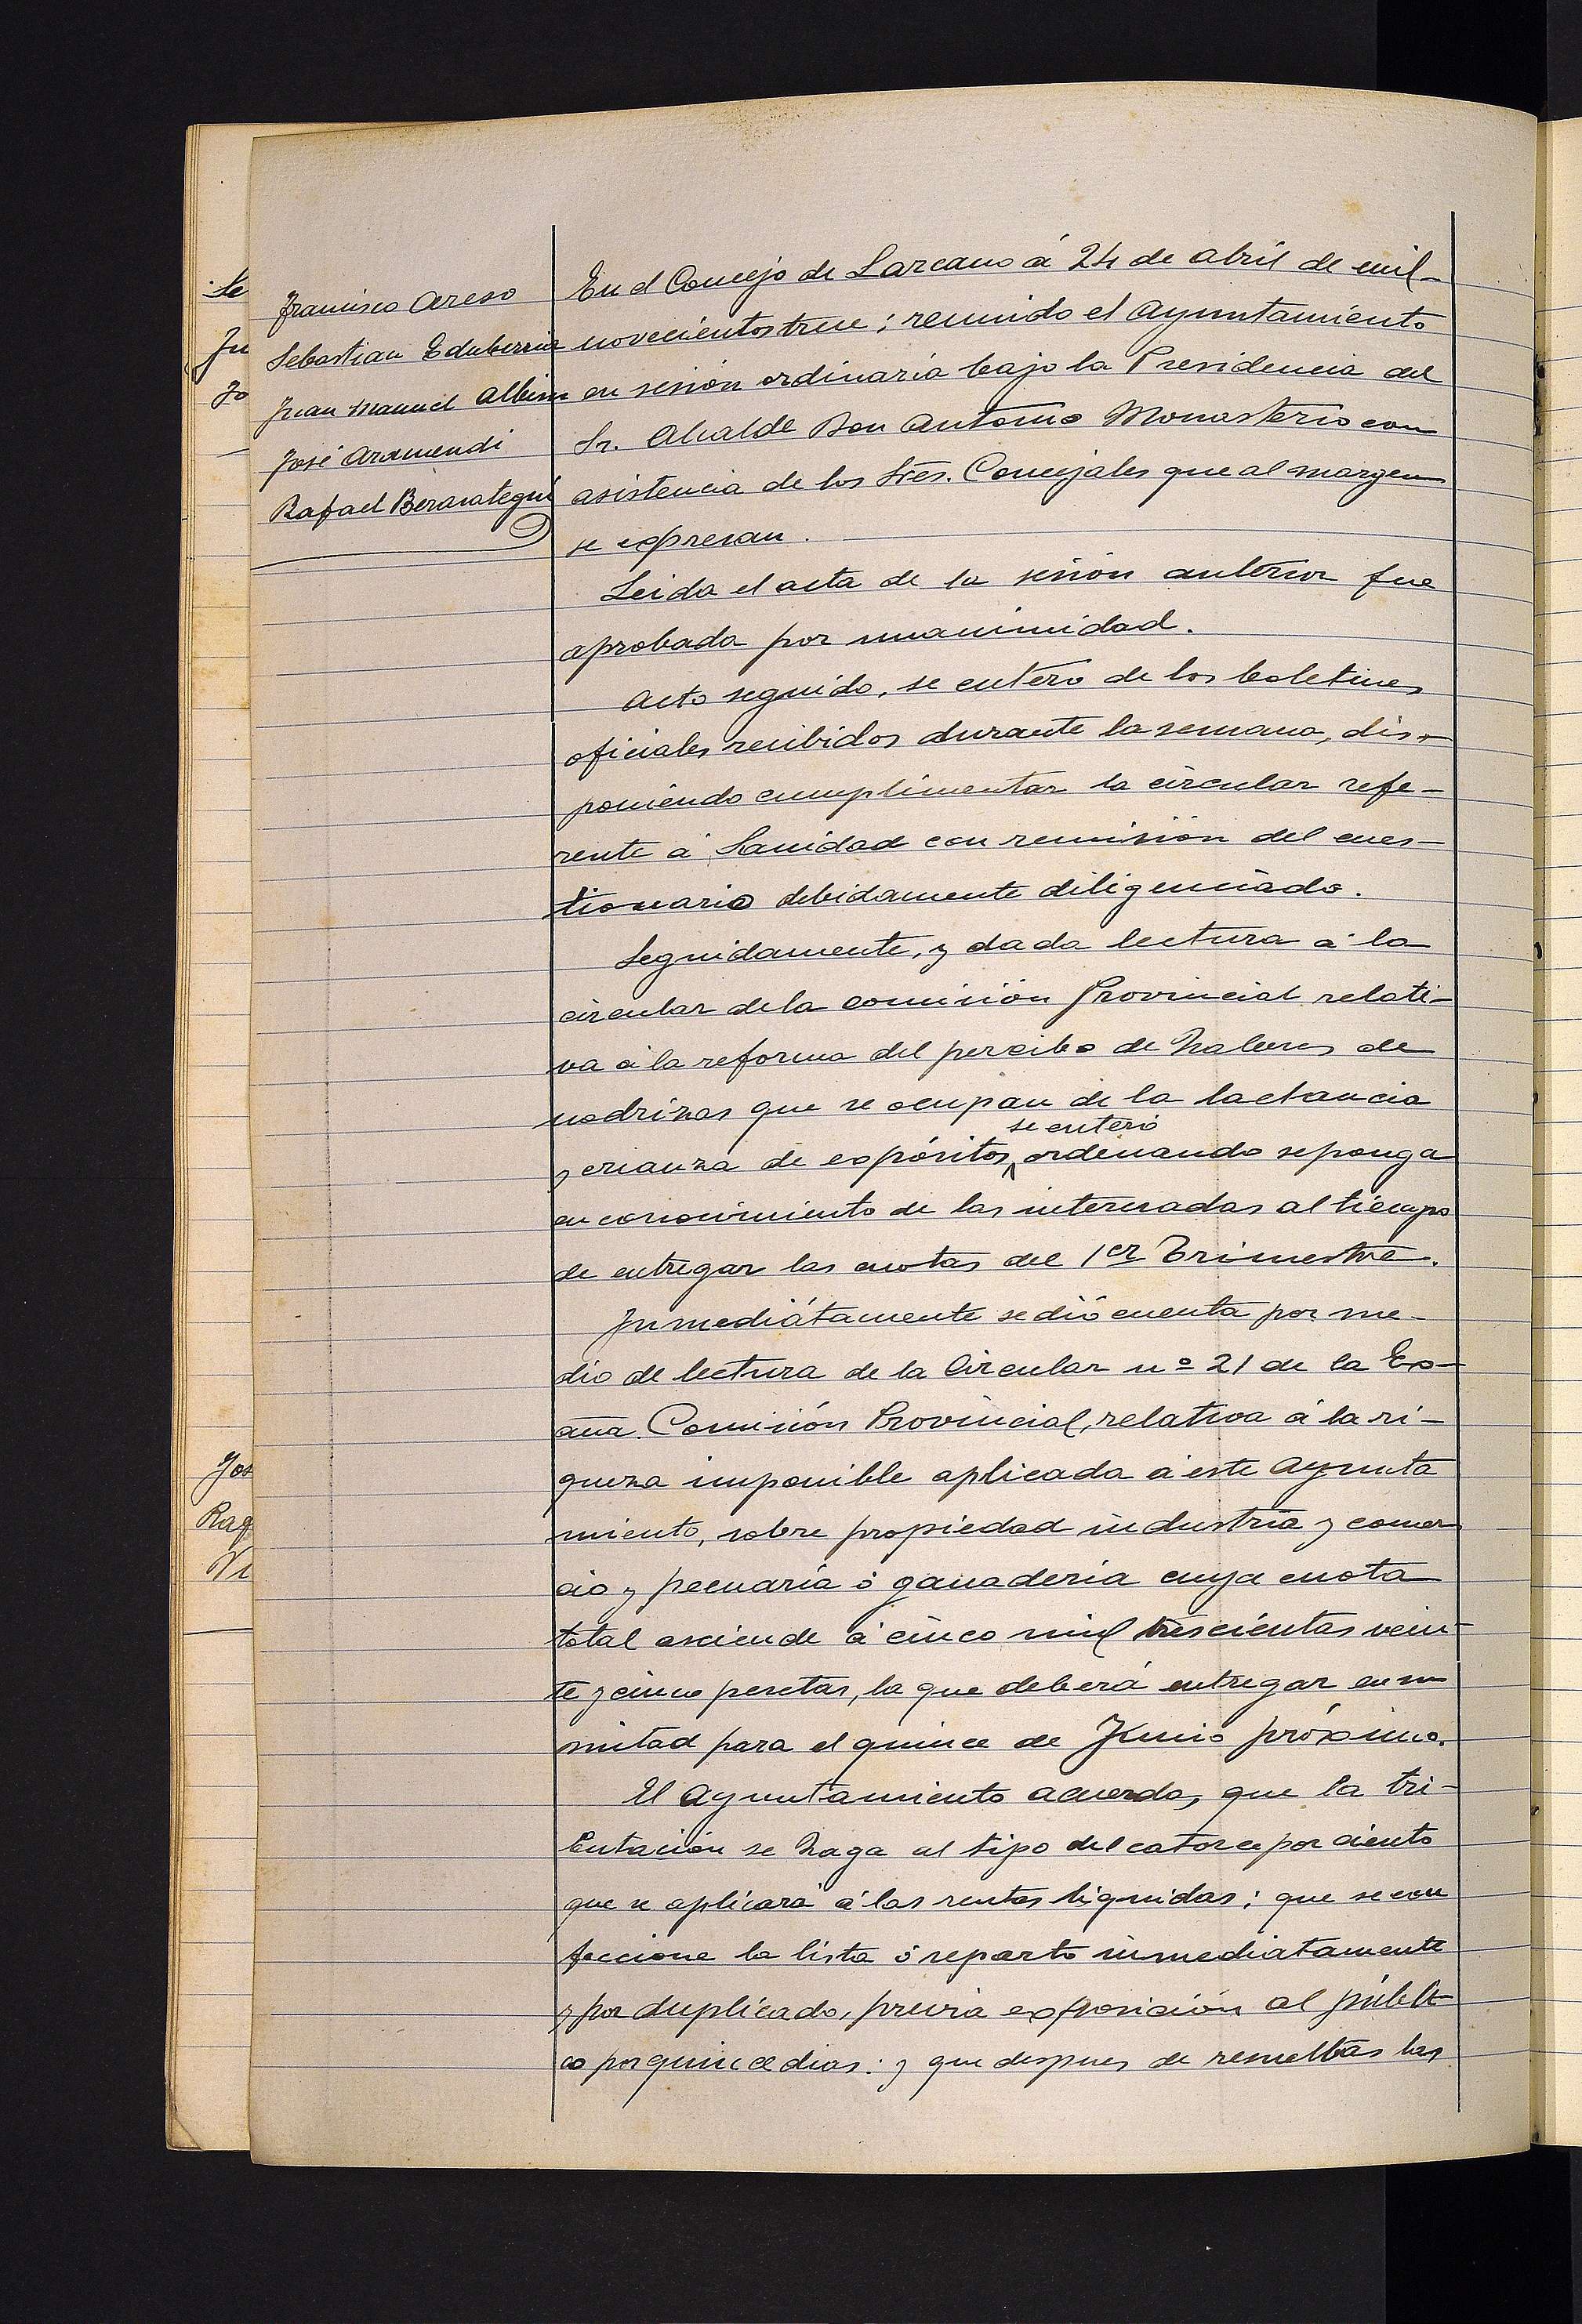 Francisco Areso
Sebastian Echeberria
Juan Manuel Albisu
José Aramendi
Rafael Berasategui
En el Concejo de Lazcano á 24 de abril de mil
novecientos trece; reunido el Ayuntamiento
en sesión ordinaria bajo la Presidencia del
Sr. Alcalde Don Antonio Monasterio con
asistencia de los Sres. Concejales que al margen
se expresan.
Leida el acta de la sesión anterior fue
aprobada por unanimidad.
Acto seguido, se enteró de los boletines
oficiales recibidos durante la semana, dis-
poniendo cumplimentar la circular refe-
rente á Sanidad con remisión del cues-
tionario debidamente diligenciado.
Seguidamente, y dada lectura á la
circular de la comisión Provincial relati-
va á la reforma del percibo de haberes de
nodrizas que se ocupan de la lactancia
se enteró
y crianza de expósitos, ordenando se ponga
en conocimiento de las interesadas al tiempo
de entregar las cuotas del 1er Trimestre.
Inmediátamente se dió cuenta por me-
dio de lectura de la Circular nº 21 de la Ex-
cma. Comisión Provincial, relativa á la ri-
queza imponible aplicada á este Ayunta
miento, sobre propiedad industria y comer
cio y pecuaria ó ganaderia cuya cuota
total asciende á cinco mil trescientas vein-
te y cinco pesetas, la que deberá entregar en su
mitad para el quince de Junio próximo.
El Ayuntamiento acuerda, que la tri-
butación se haga al tipo del catorce por ciento
que se aplicará á las rentas liquidas; que se con
feccione la lista ó reparto inmediatamente
y por duplicado, previa exposición al públi-
co por quince dias: y que despues de resueltas las
Se
Ju
Jo
Jos
Raf
Vi